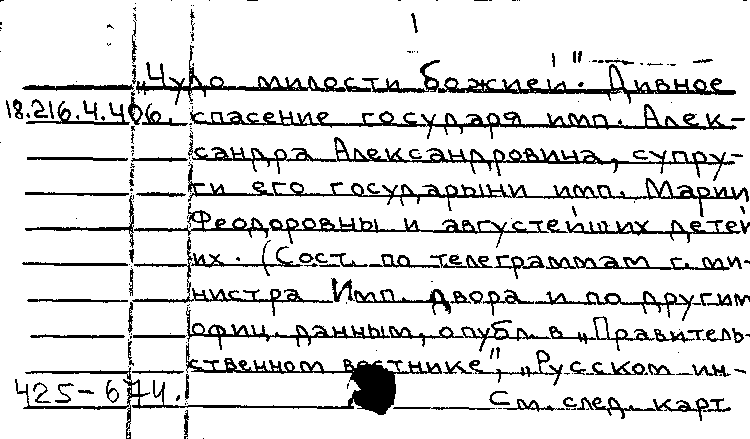 1
„Чудо милости божией". Дивное
18.216.4.406. спасение государя имп. Алек-
сандра Александровича, супру-
ги его государыни имп. Марии
Феодоровны и августейших детей
их. (Сост. по телеграммам г. ми-
нистра Имп. двора и по другим
офиц. данным, опубл. в „Правитель-
ственном вестнике", „Русском ин-
425-674. См. след. карт